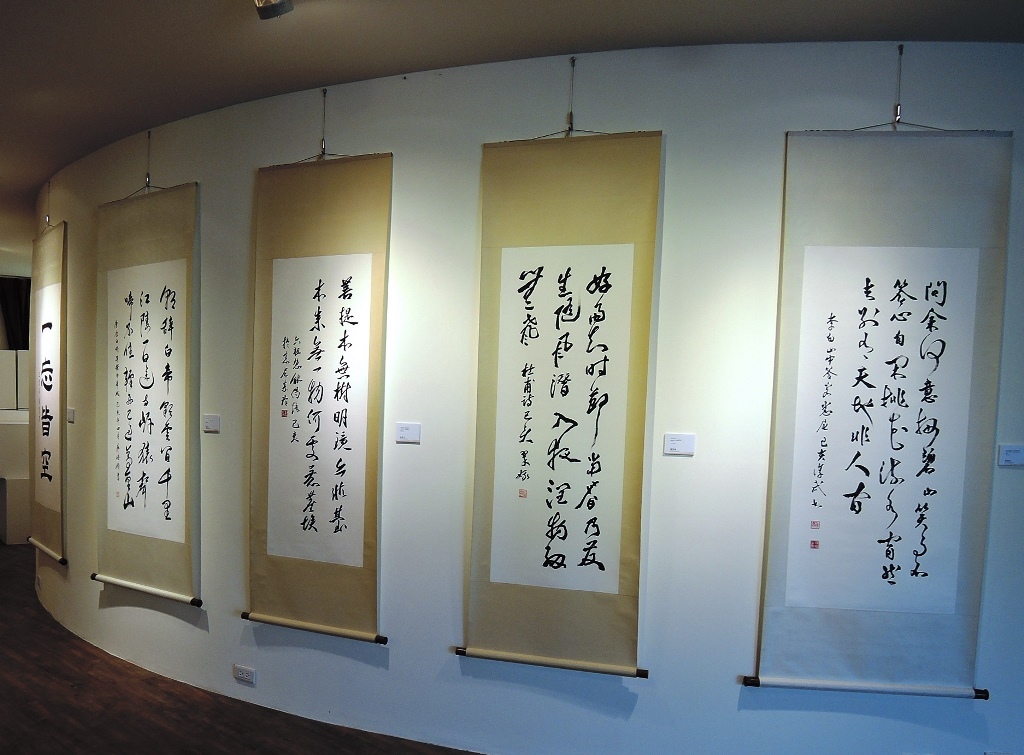 問余何意栖碧山笑而不
答心自閑桃花流水窅然
去別有天地非人間
李白山中答
己亥
好雨知時節當春乃發
生隨風潛入夜潤物細
無聲
杜甫詩己亥
菩提本無樹明鏡亦非臺
本來無一物何處惹塵埃
六祖惠能偈語己亥
朝辭白帝彩雲間千里
江陵一日還兩岸猿聲
啼不住輕舟已過萬重山
一忘皆空